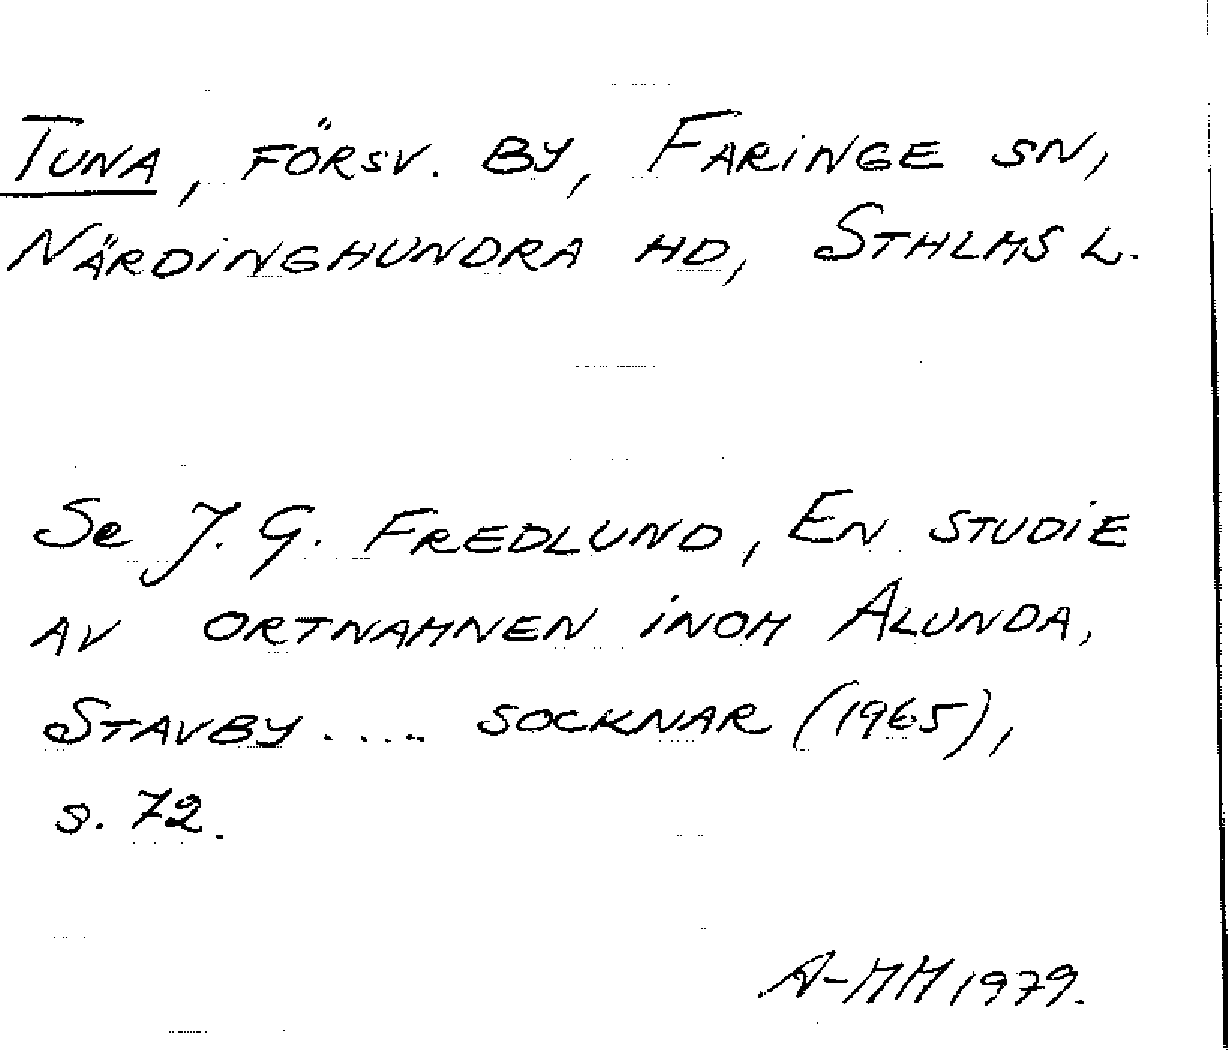 Tuna, försv. by, Faringe sn,
Närdinghundra hd, Sthlms l.
Se J. G. Fredlund, En studie
av ortnamnen inom Alunda,
Stavby .... socknar (1965),
s. 72.
A-MM 1979.